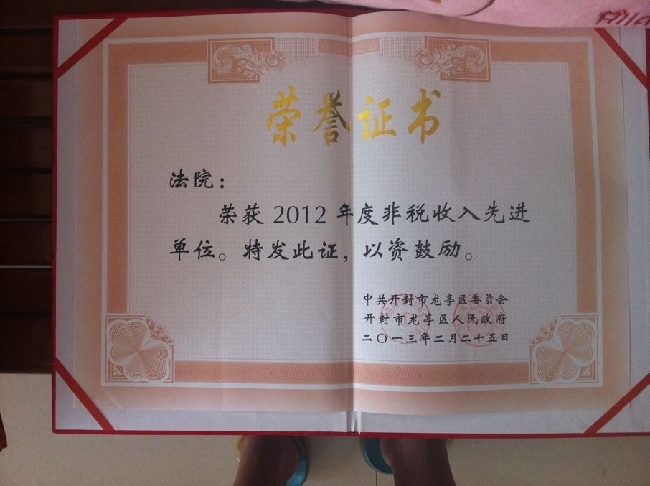 荣誉证书
法院：
荣获2012年度非税收入先进
单位。特发此证，以资鼓励。
中共开封市龙亭区委员会
开封市龙亭区人民政府
二〇一三年二月二十五日